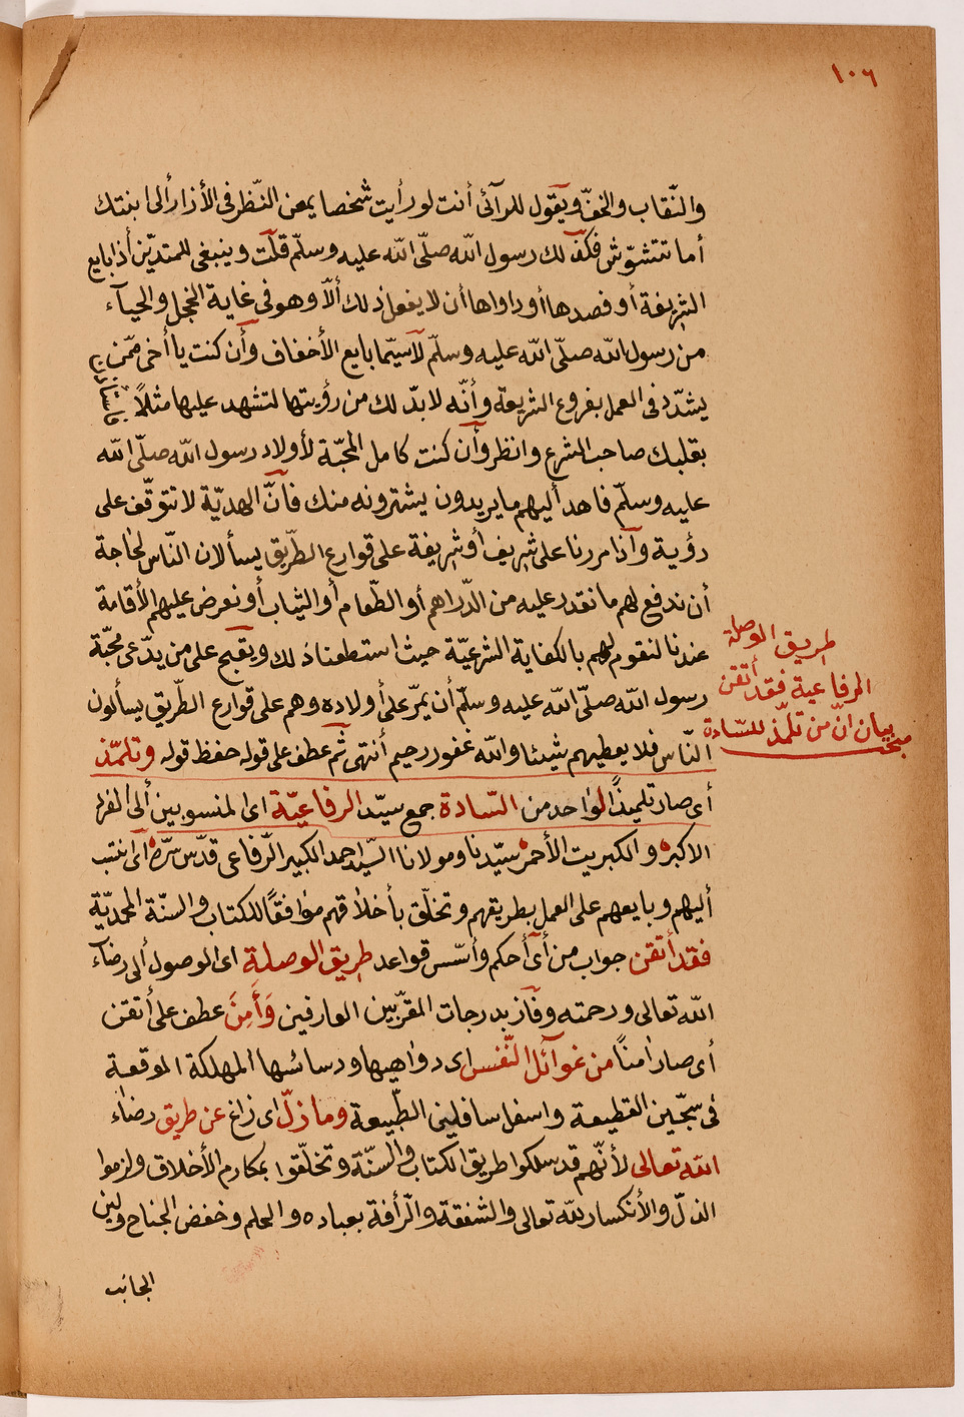 ١٠٦
والنّقاب والخفّ ويقول للرآئى أنت لو رأيت شخصا يمعن النّظر فى الأزار ألى ابنتك
أما تتشوّش فكذلك رسول اللّه صلّى اللّه عليه وسلّم قلت وينبغى للمتديّن أذا بايع
الشريفة أو فصدها أو داواها أن لا يفعل ذلك ألّا وهو فى غاية الخجل والحيآء
من رسول اللّه صلّى اللّه عليه وسلّم لآسيّما بايع الأخفاف وأن كنت يا أخى ممّن
يشدّد فى العمل بفروع الشريعة وأنّه لا بدّ لك من رؤيتها لتشهد عليها مثلاً
بقلبك صاحب الشرع وانظر وأن كنت كامل المحبّة لأولاد رسول اللّه صلّى اللّه
عليه وسلّم فاهد أليهم ما يريدون يشترونه منك فأنّ الهديّة لا تتوقّف على
رؤية وأذا مررنا على شريف أو شريفة على قوارع الطّريق يسألان النّاس لحاجة
أن ندفع لهم ما نقدر عليه من الدّراهم أو الطّعام أو الثياب أو نعرض عليهم الأقامة
عندنا لنقوم لهم بالكفاية الشرعيّة حيث استطعنا ذلك ويقبح على من يدّعى محبّة
رسول اللّه صلّى اللّه عليه وسلّم أن يمرّ على أولاده وهم على قوارع الطّريق يسألون
النّاس فلا يعطيهم شيئا واللّه غفور رحيم أنتهى ثمّ عطف على قوله حفظ قوله وتلمّذ
أى صار تلميذًا لواحد من السّادة جمع سيّد الرفاعيّة اى المنسوبين ألى المفرد
الاكبر والكبريت الأحمر سيّدنا ومولانا السيّد احمد الكبير الرّفاعى قدّس سرّه اى انتسب
أليهم وبايعهم على العمل بطريقهم وتخلّق بأخلاقهم موافقًا للكتاب والسنّة المحمّديّة
فقد أتقن جواب من أى أحكم وأسّس قواعد طريق الوصلة اى الوصول ألى رضآء
اللّه تعالى ورحمته وفاز بدرجات المقرّبين العارفين وَأَمِنَ عطف على أتقن
أى صار امنًا من غوآئل النّفس اى دواهيها ودسائسها المهلكة الموقعة
فى سجّين القطيعة واسفل سافلينى الطّبيعة وما زلّ اى زاغ عن طريق رضاء
اللّه تعالى لأنّهم قد سلكوا طريق الكتاب والسنّة وتخلّقوا بمكارم الأخلاق ولزموا
الذلّ والأنكسار للّه تعالى والشفقة والرّأفة بعباده والحلم وخفض الجناح ولين
الجانب
طريق الوصلة
الرفاعية فقد أتقن
بيان أنّ من تلمّذ للسّادة
مبحث